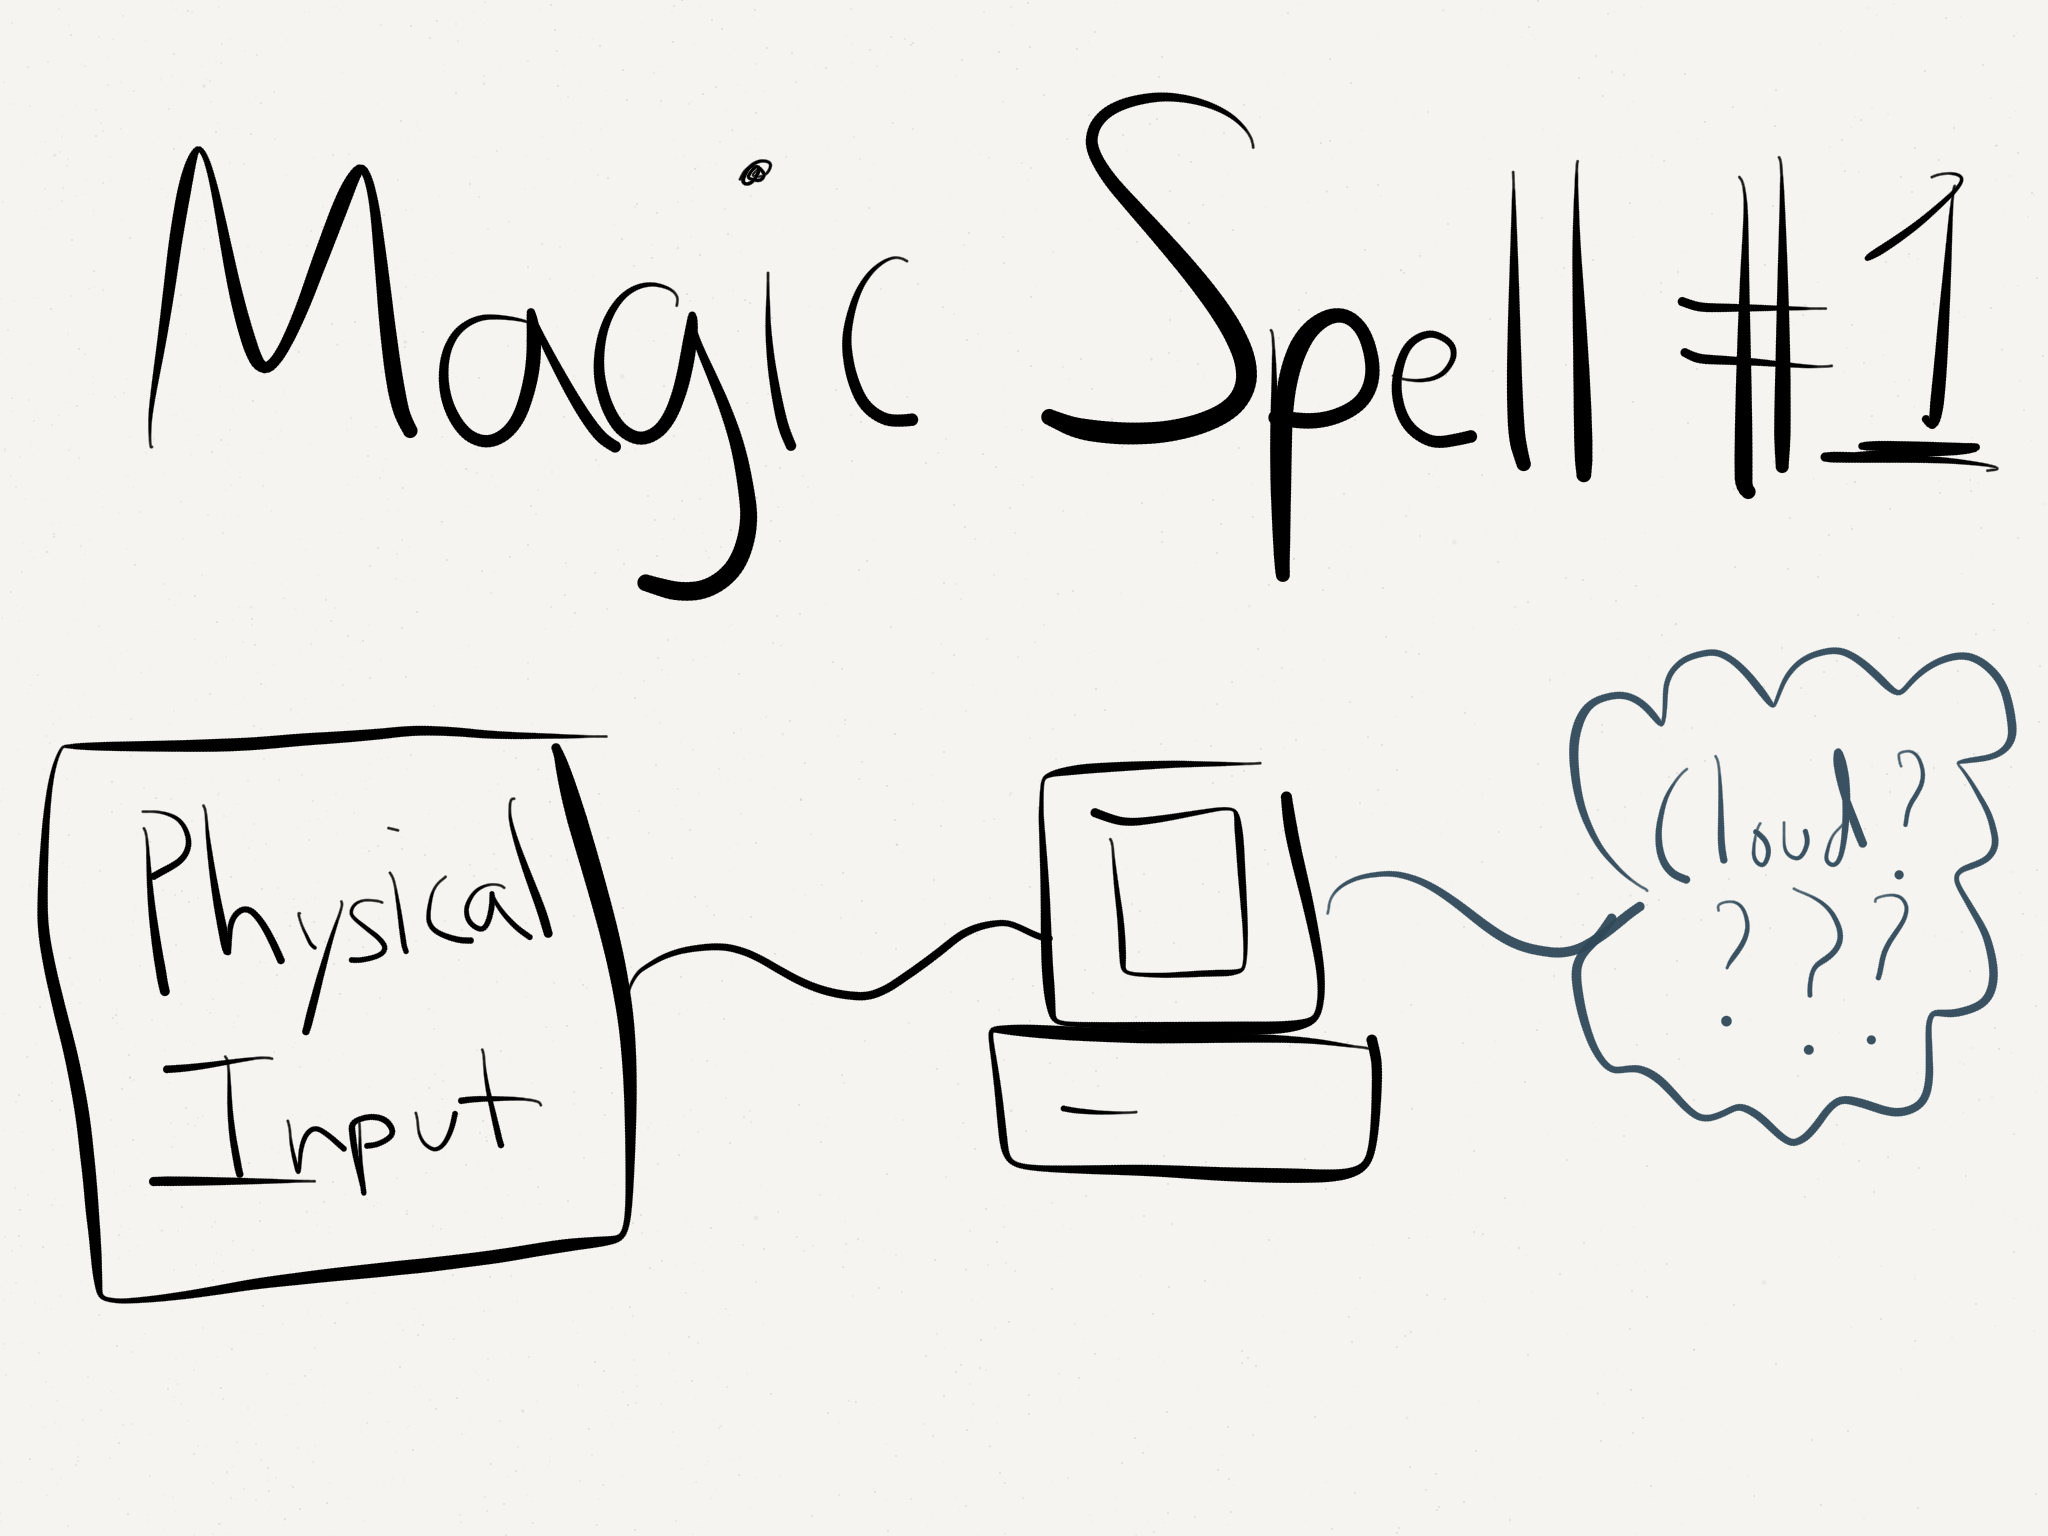 Magic Spell #1
Physical
Input
Cloud?
???